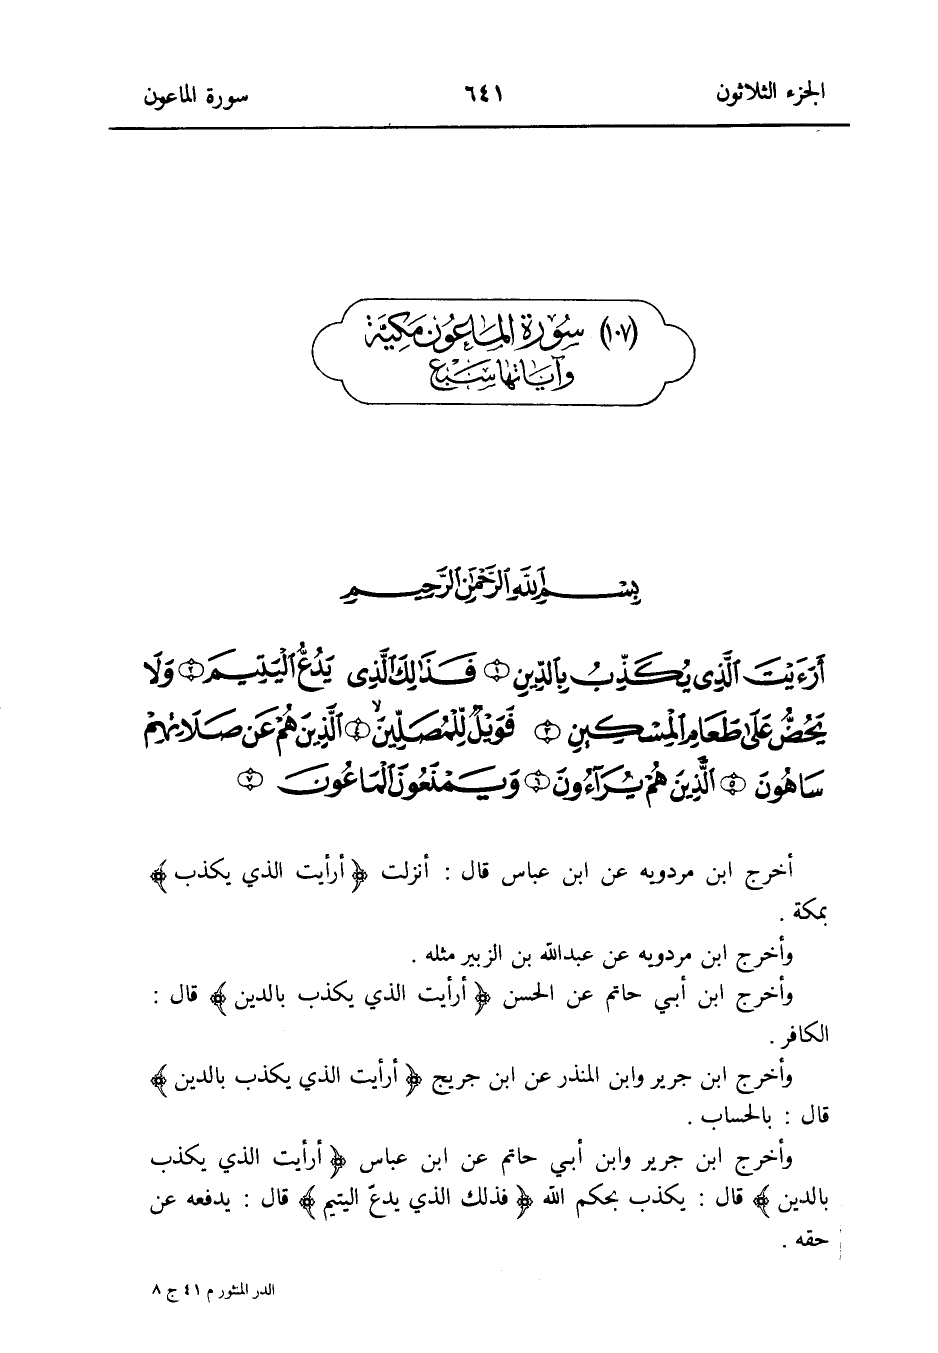 الجزء الثلاثون ٦٤١ سورة الماعون
(١٠٧) سُورَة المَاعُون مَكِيَّة
وآيَاتهَا سَبْع
بِسْمِ اللَّهِ الرَّحْمَٰنِ الرَّحِيمِ
أَرَءَيْتَ الَّذِى يُكَذِّبُ بِالدِّينِ ① فَذَٰلِكَ الَّذِى يَدُعُّ الْيَتِيمَ ② وَلَا
يَحُضُّ عَلَىٰ طَعَامِ الْمِسْكِينِ ③ فَوَيْلٌ لِّلْمُصَلِّينَ ④ الَّذِينَ هُمْ عَن صَلَاتِهِمْ
سَاهُونَ ⑤ الَّذِينَ هُمْ يُرَآءُونَ ⑥ وَيَمْنَعُونَ الْمَاعُونَ ⑦
أخرج ابن مردويه عن ابن عباس قال : أنزلت ﴿ أرأيت الذي يكذب ﴾
بمكة .
وأخرج ابن مردويه عن عبدالله بن الزبير مثله .
وأخرج ابن أبي حاتم عن الحسن ﴿ أرأيت الذي يكذب بالدين ﴾ قال :
الكافر .
وأخرج ابن جرير وابن المنذر عن ابن جريج ﴿ أرأيت الذي يكذب بالدين ﴾
قال : بالحساب .
وأخرج ابن جرير وابن أبي حاتم عن ابن عباس ﴿ أرأيت الذي يكذب
بالدين ﴾ قال : يكذب بحكم الله ﴿ فذلك الذي يدعّ اليتيم ﴾ قال : يدفعه عن
حقه .
الدر المنثور م ٤١ ج ٨